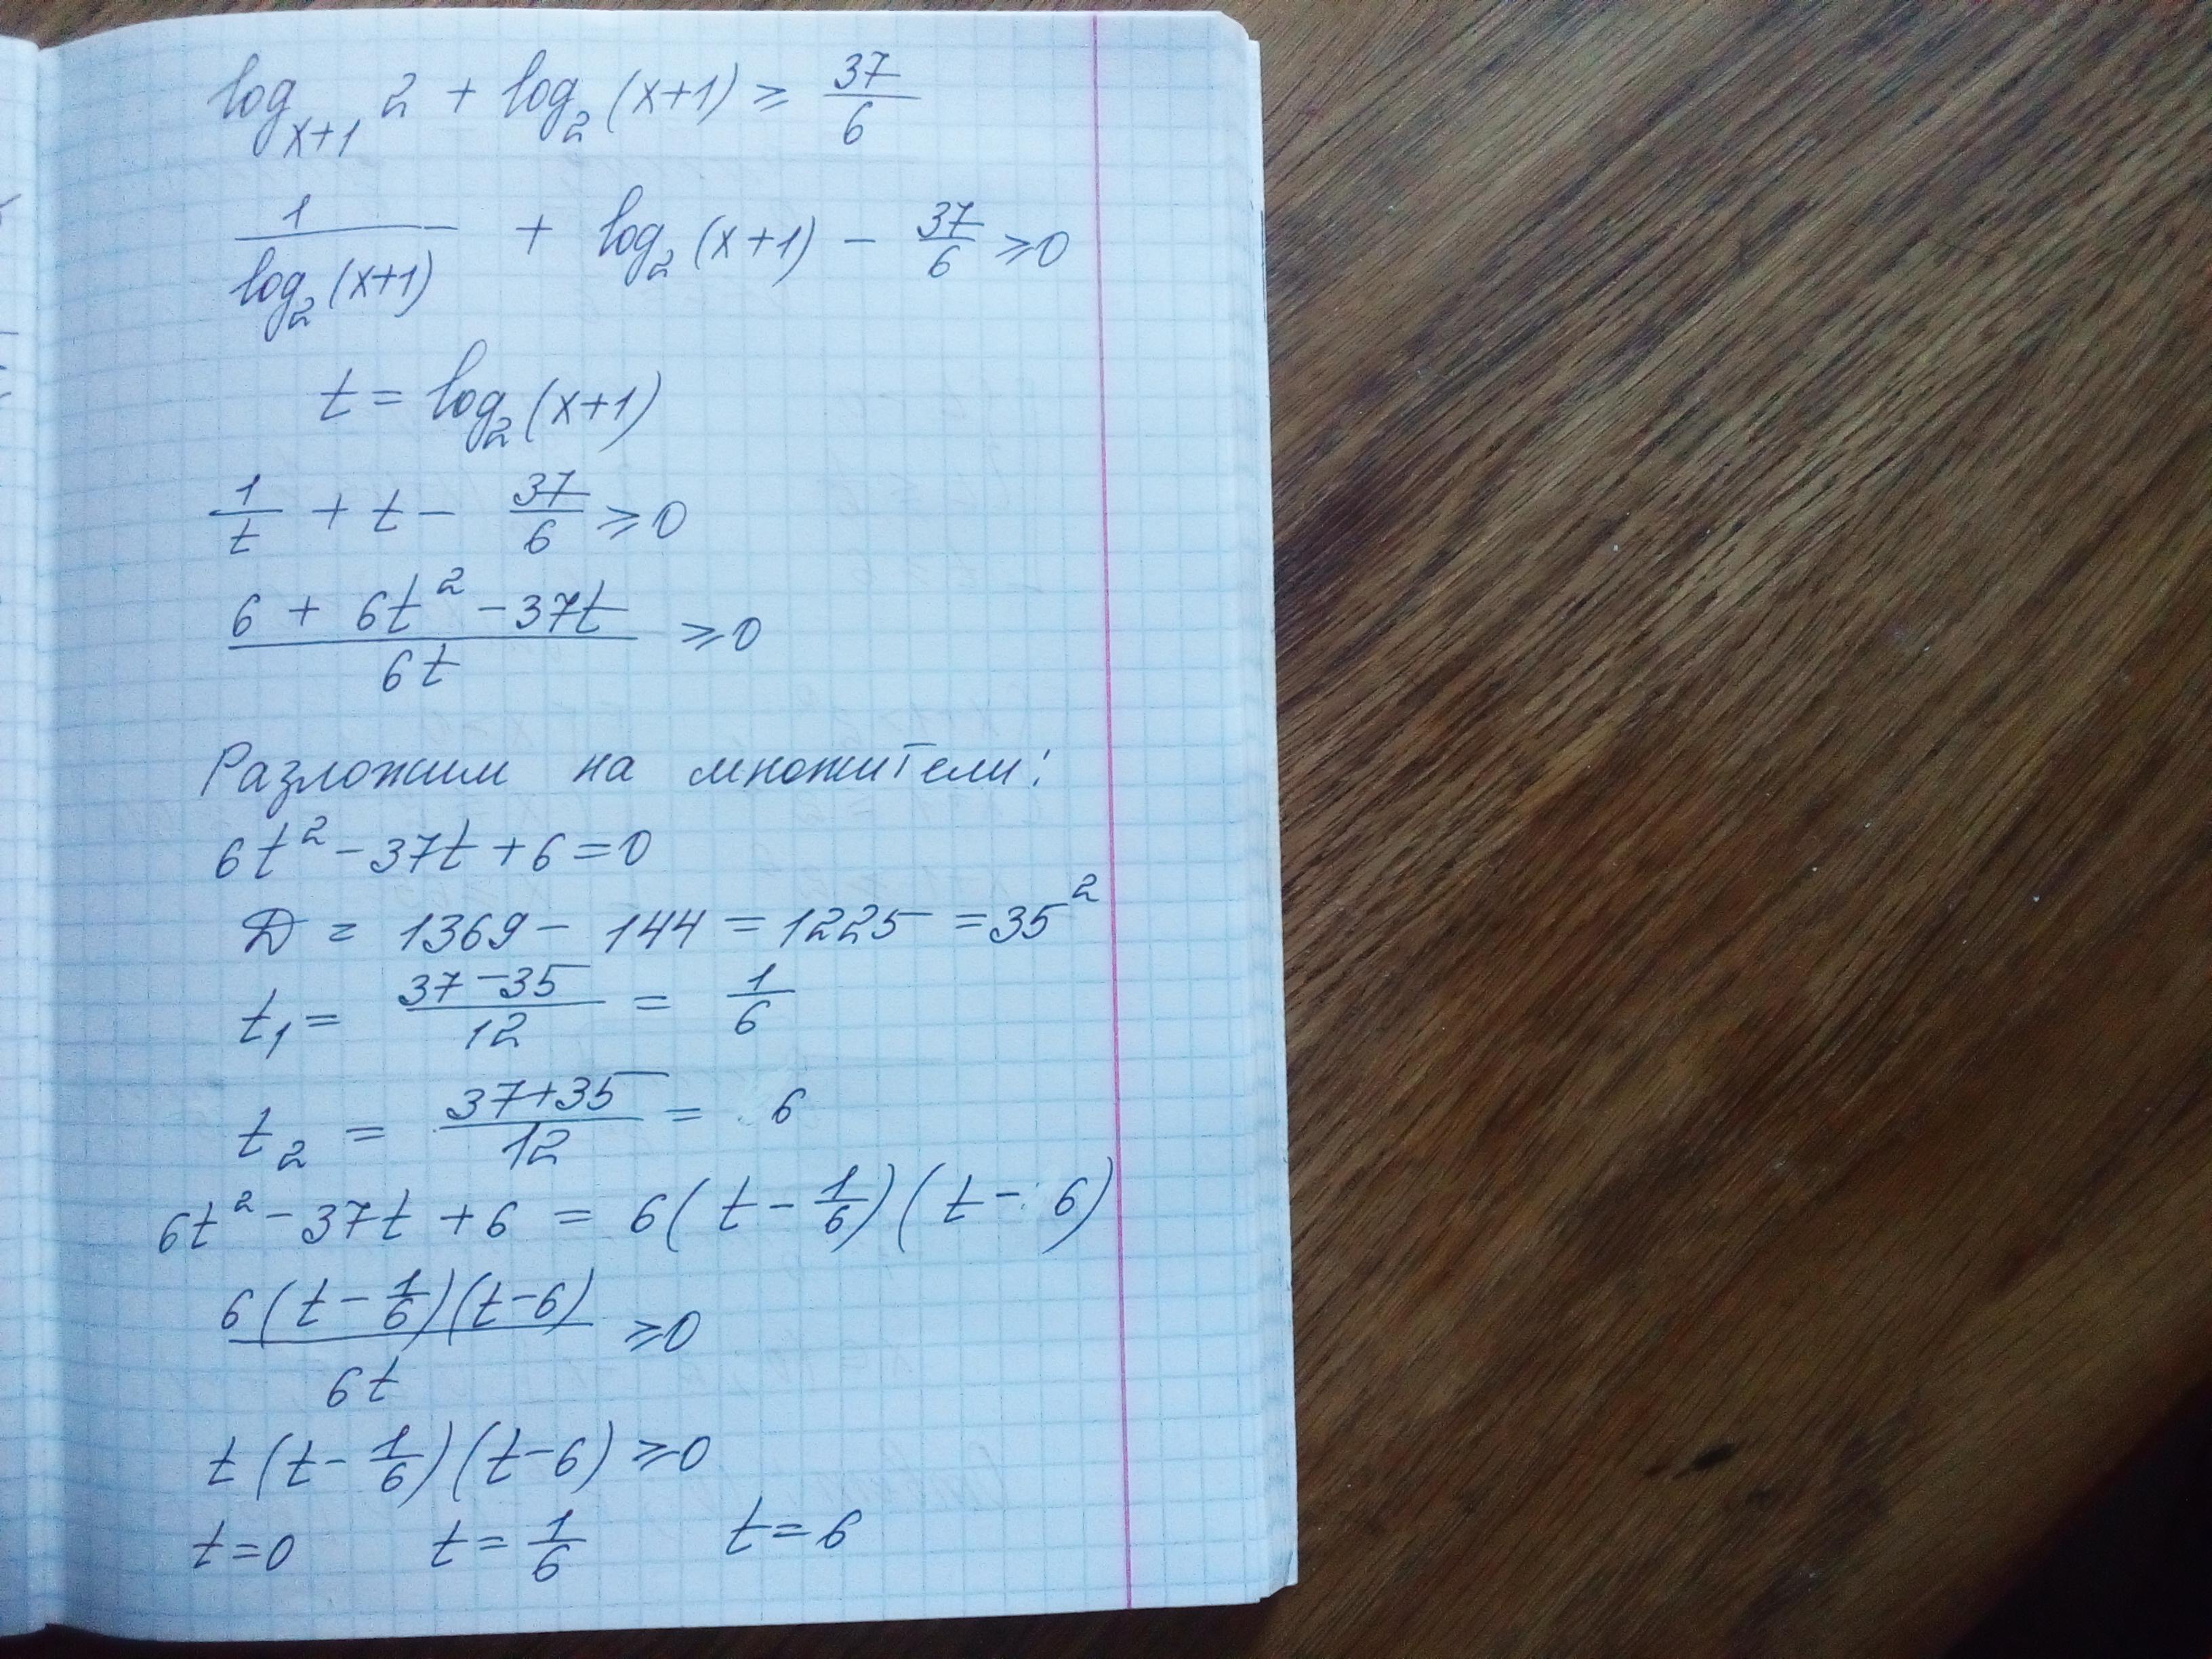 log_{x+1} 2 + log_2 (x+1) ≥ 37/6
1/log_2(x+1) + log_2(x+1) - 37/6 ≥ 0
t = log_2(x+1)
1/t + t - 37/6 ≥ 0
(6 + 6t^2 - 37t)/6t ≥ 0
Разложим на множители:
6t^2 - 37t + 6 = 0
D = 1369 - 144 = 1225 = 35^2
t_1 = (37-35)/12 = 1/6
t_2 = (37+35)/12 = 6
6t^2 - 37t + 6 = 6(t - 1/6)(t - 6)
6(t - 1/6)(t-6)/6t ≥ 0
t(t - 1/6)(t-6) ≥ 0
t=0 t = 1/6 t = 6